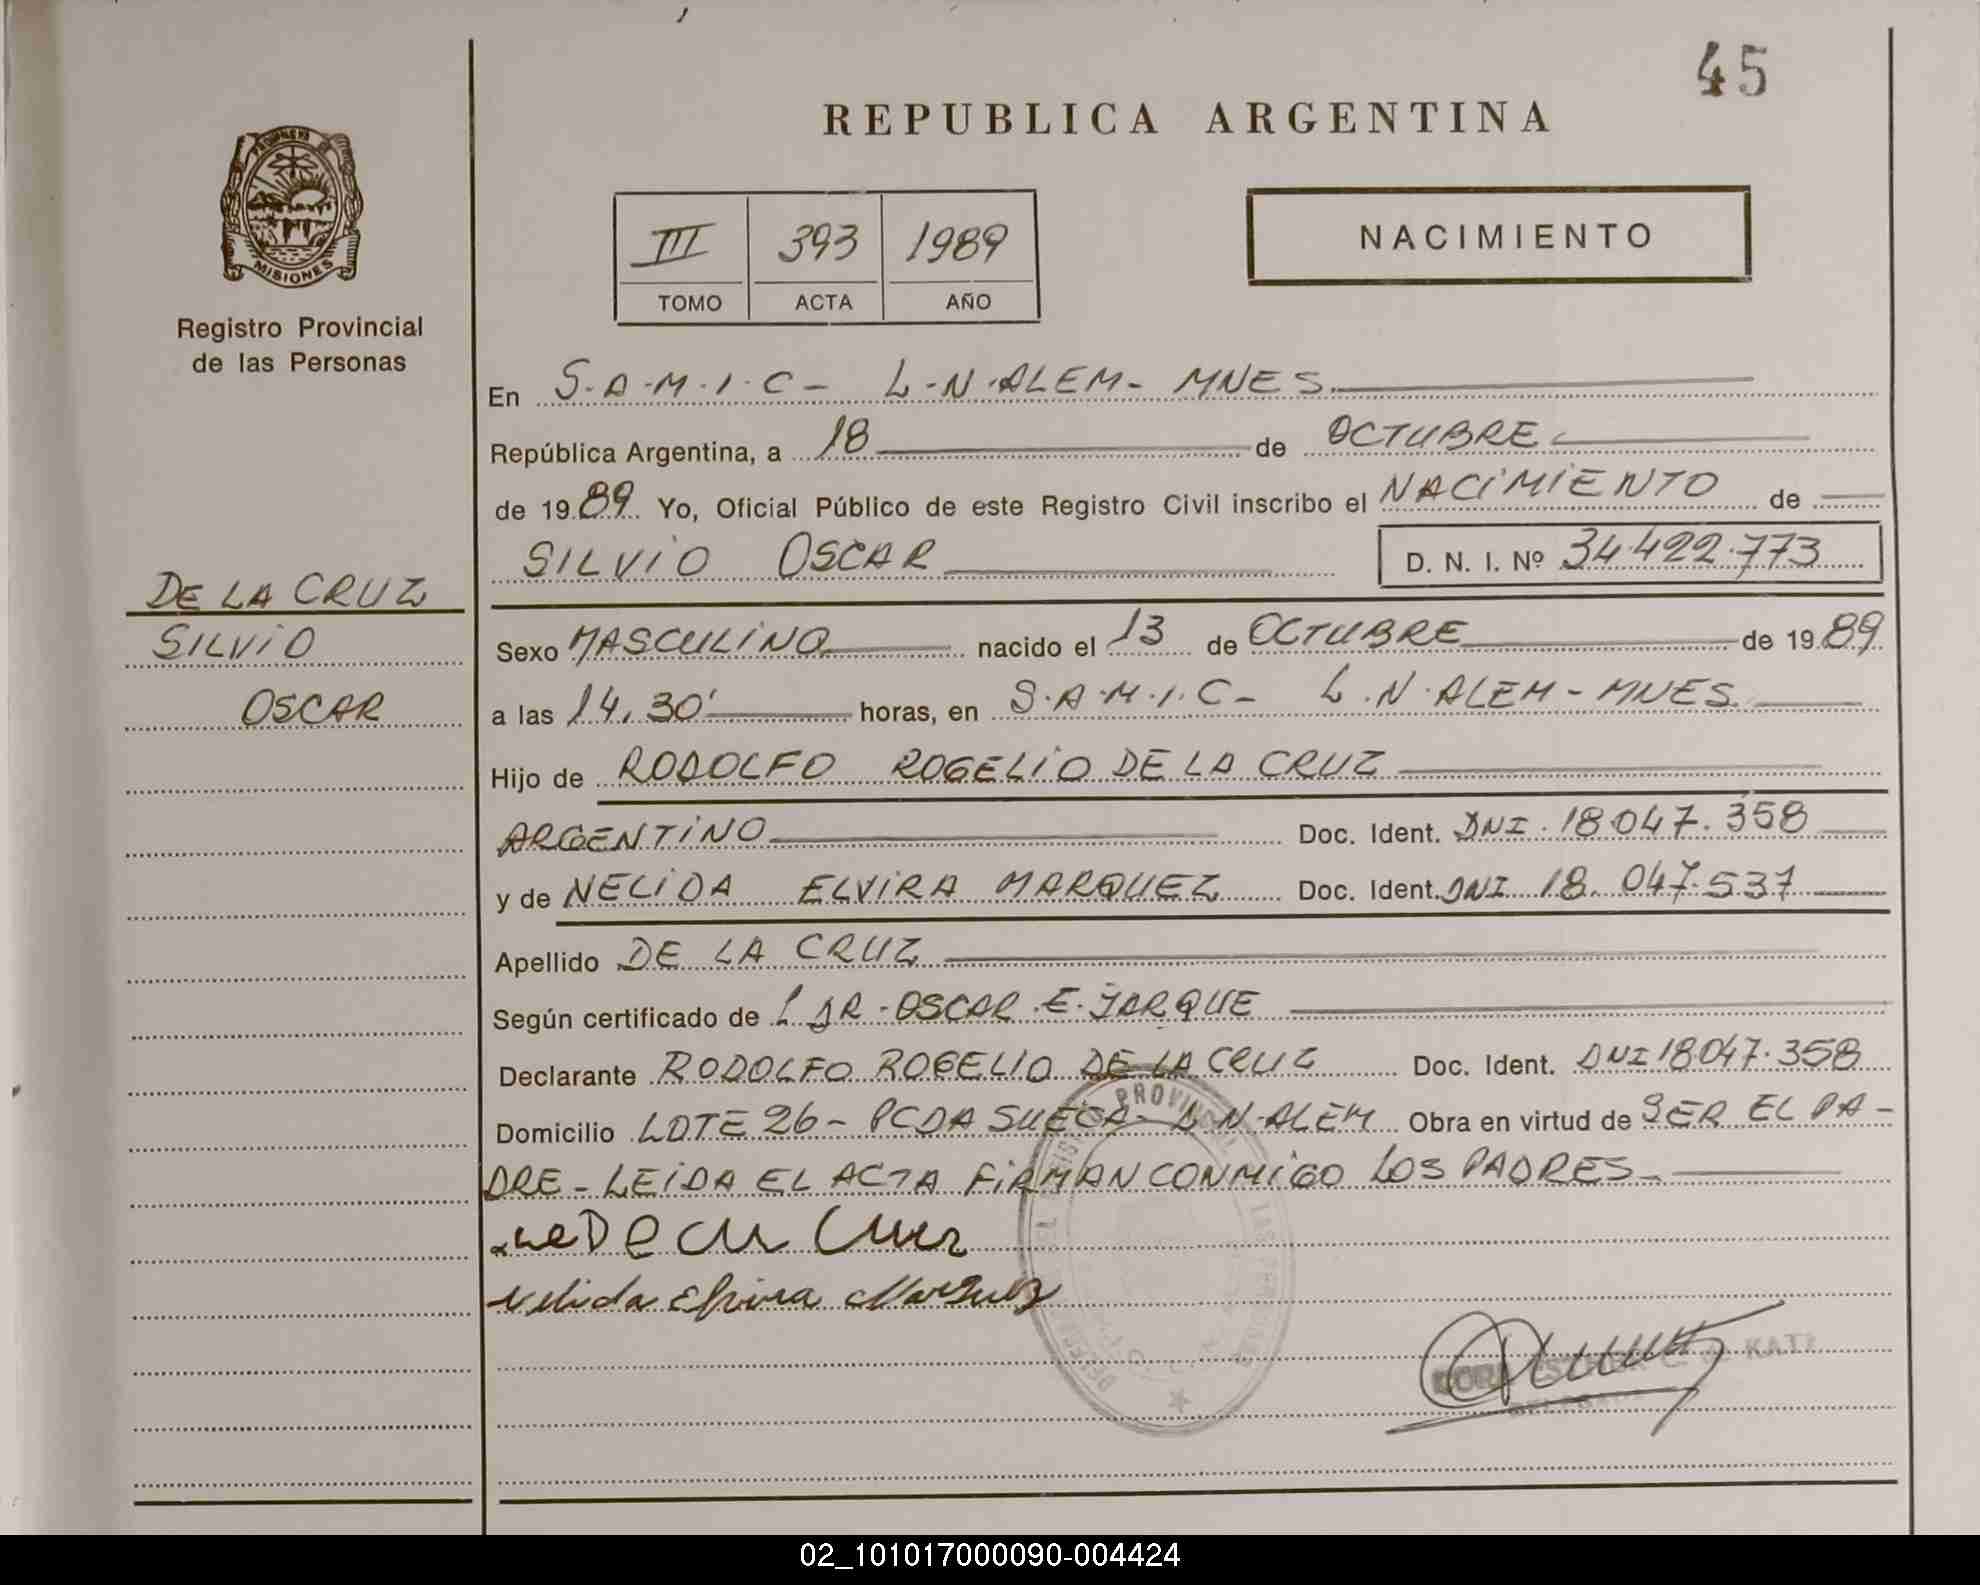 45
REPUBLICA ARGENTINA
III 393 1989
TOMO ACTA AÑO
NACIMIENTO
MISIONES
Registro Provincial
de las Personas
En S.A.M.I.C- L.N.ALEM- MNES.
República Argentina, a 18 de OCTUBRE
de 1989 Yo, Oficial Público de este Registro Civil inscribo el NACIMIENTO de
SILVIO OSCAR D. N. I. Nº 34.422.773
DE LA CRUZ
SILVIO
OSCAR
Sexo MASCULINO nacido el 13 de OCTUBRE de 1989
a las 14,30' horas, en S.A.M.I.C- L.N.ALEM-MNES.
Hijo de RODOLFO ROGELIO DE LA CRUZ
ARGENTINO Doc. Ident. DNI.18.047.358
y de NELIDA ELVIRA MARQUEZ Doc. Ident. DNI 18.047.537
Apellido DE LA CRUZ
Según certificado de DR. OSCAR.E.JARQUE
Declarante RODOLFO ROGELIO DE LA CRUZ Doc. Ident. DNI 18.047.358
Domicilio LOTE 26- PCDA SUECA- L.N.ALEM Obra en virtud de SER EL PA-
DRE-LEIDA EL ACTA FIRMAN CONMIGO LOS PADRES-
De la Cruz
Nelida Elvira Marquez
02_101017000090-004424